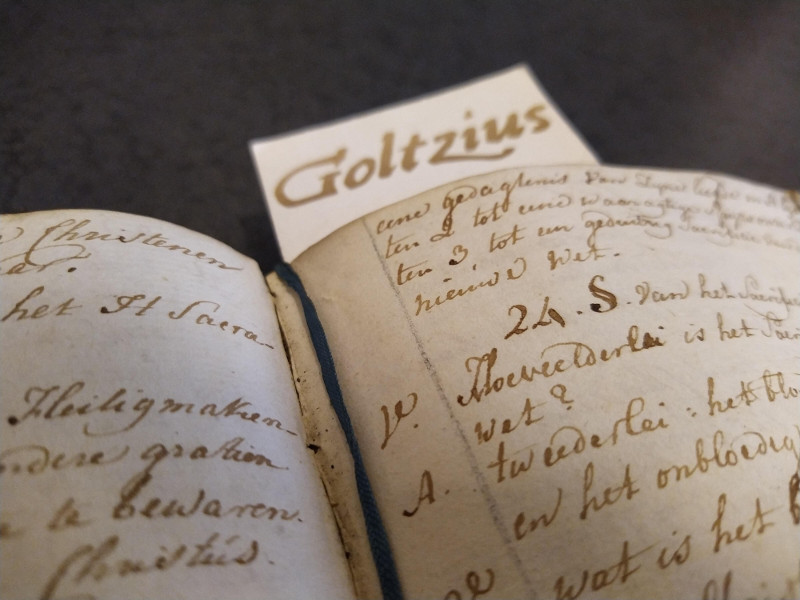 Goltzius
Christenen
het H Sacra-
Heiligmaken-
ndere gratien
e te bewaren.
Christús.
eene gedagtenis van
ten 2 tot eene waaragtige
ten 3 tot een
nieuwe wet.
24. §. van het
V. Hoeveelderlei is het
wet?
A. tweederlei: het blo
en het onbloedig
wat is het